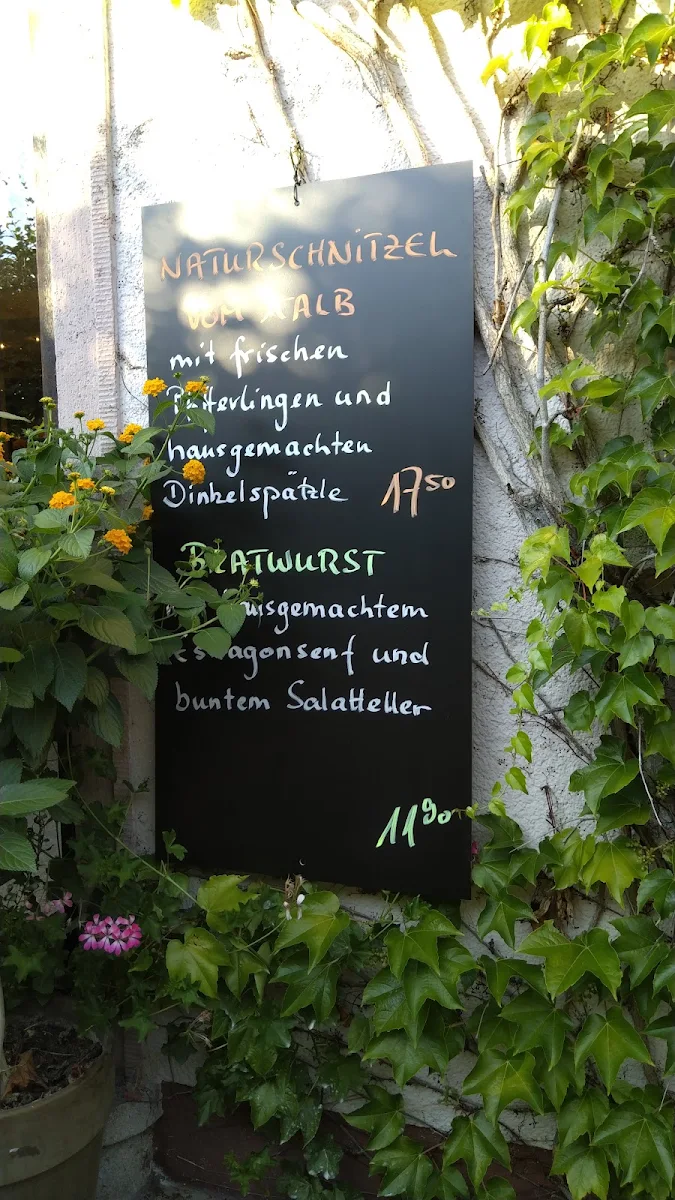 NATURSCHNITZEL
VOM KALB
mit frischen
Pfifferlingen und
hausgemachten
Dinkelspätzle 17⁵⁰
BRATWURST
Estragonsenf und
buntem Salatteller
11⁹⁰